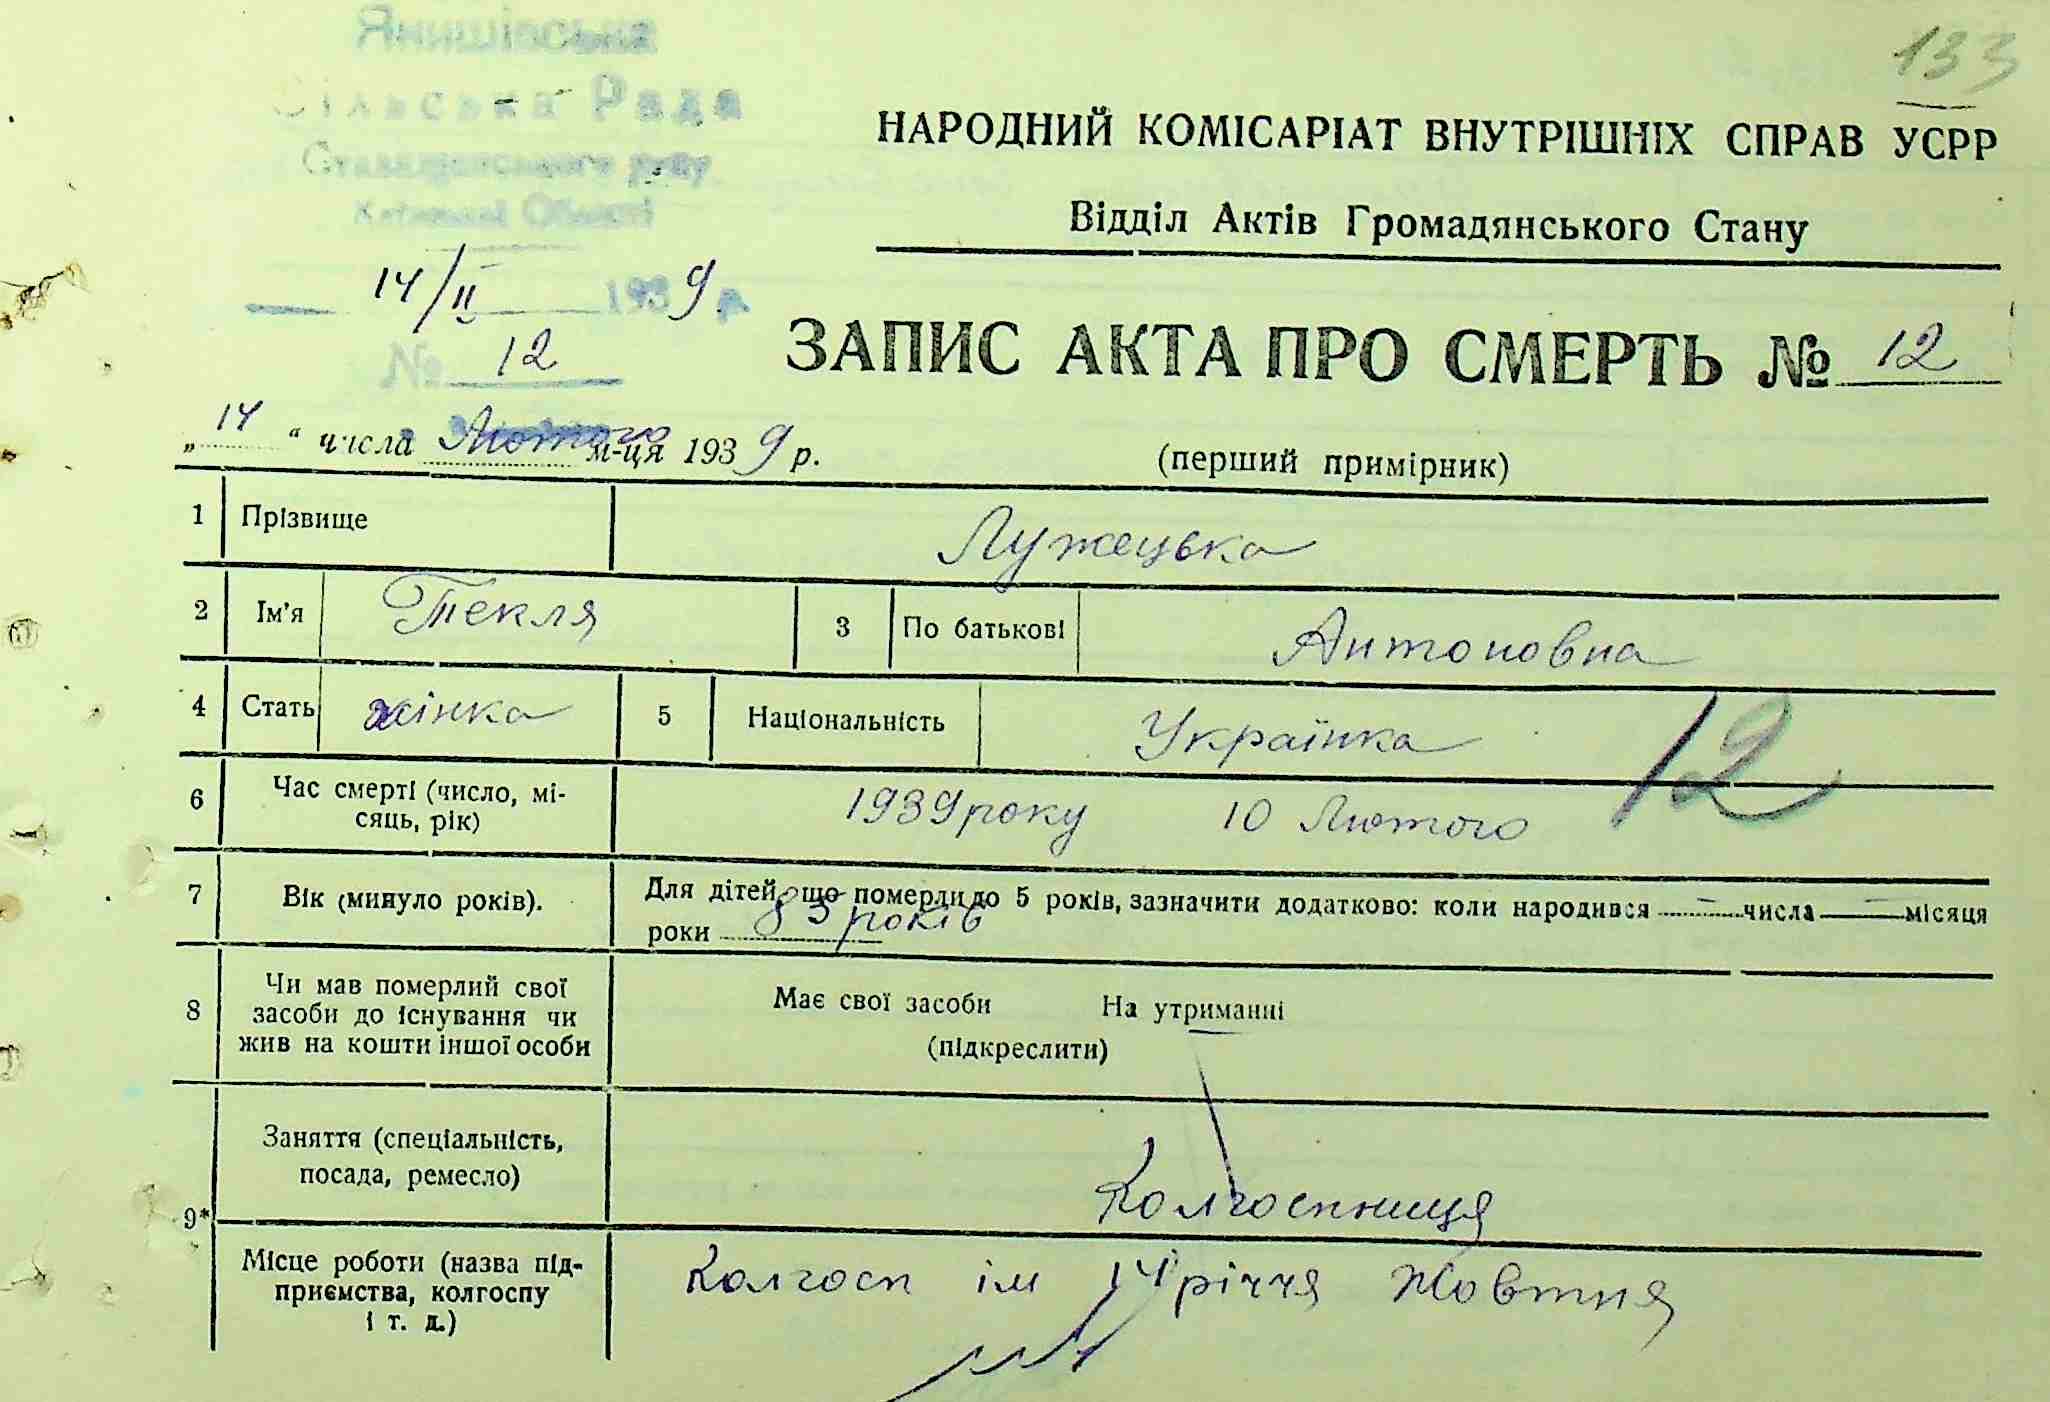 133
Янишівська
Сільська Рада
Ставищенського р-ну
Київської Області
НАРОДНИЙ КОМІСАРІАТ ВНУТРІШНІХ СПРАВ УСРР
Відділ Актів Громадянського Стану
14/II 1939 р.
№ 12
ЗАПИС АКТА ПРО СМЕРТЬ № 12
„14“ числа Лютого м-ця 1939 р.
(перший примірник)
1 Прізвище Лужецька
2 Ім'я Текля 3 По батькові Антоновна
4 Стать жінка 5 Національність Українка
12
6 Час смерті (число, мі-
сяць, рік)
1939 року 10 Лютого
7 Вік (минуло років).
Для дітей, що померли до 5 років, зазначити додатково: коли народився — числа — місяця
роки 83 років
8 Чи мав померлий свої
засоби до існування чи
жив на кошти іншої особи
Має свої засоби На утриманні
(підкреслити)
9*
Заняття (спеціальність,
посада, ремесло)
Колгоспниця
Місце роботи (назва під-
приємства, колгоспу
і т. д.)
Колгосп ім 14 річчя Жовтня